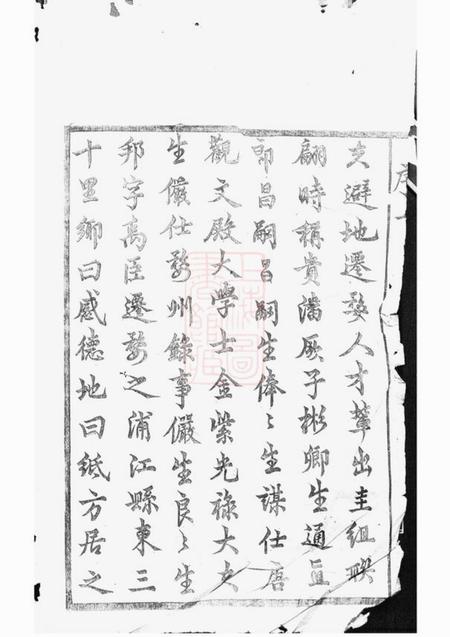 避地遷婺人才輩出圭組聯
翩時稱貴潘厥子彬卿生通直
郎昌嗣昌嗣生俸〻生謀仕唐
觀文殿大學士金紫光祿大夫
生儼仕婺州錄事儼生良〻生
邦字禹臣遷婺之浦江縣東三
十里鄉曰感德地曰紙方居之